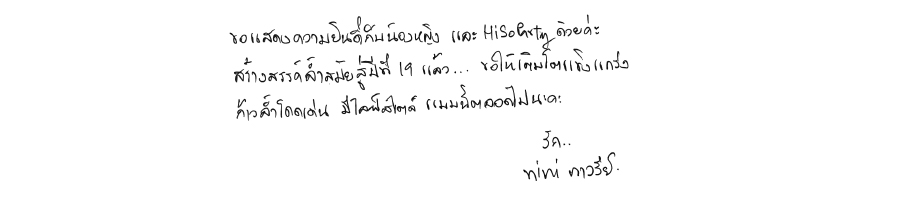 ขอแสดงความยินดีกับน้องหญิง และ HiSoParty ด้วยค่ะ
สร้างสรรค์ล้ำสมัยสู่ปีที่ 19 แล้ว... ขอให้เติบโตแข็งแกร่ง
ก้าวล้ำโดดเด่น มีไลฟ์สไตล์ แบบนี้ตลอดไปนะคะ
รัก..
ภาวรีย์.